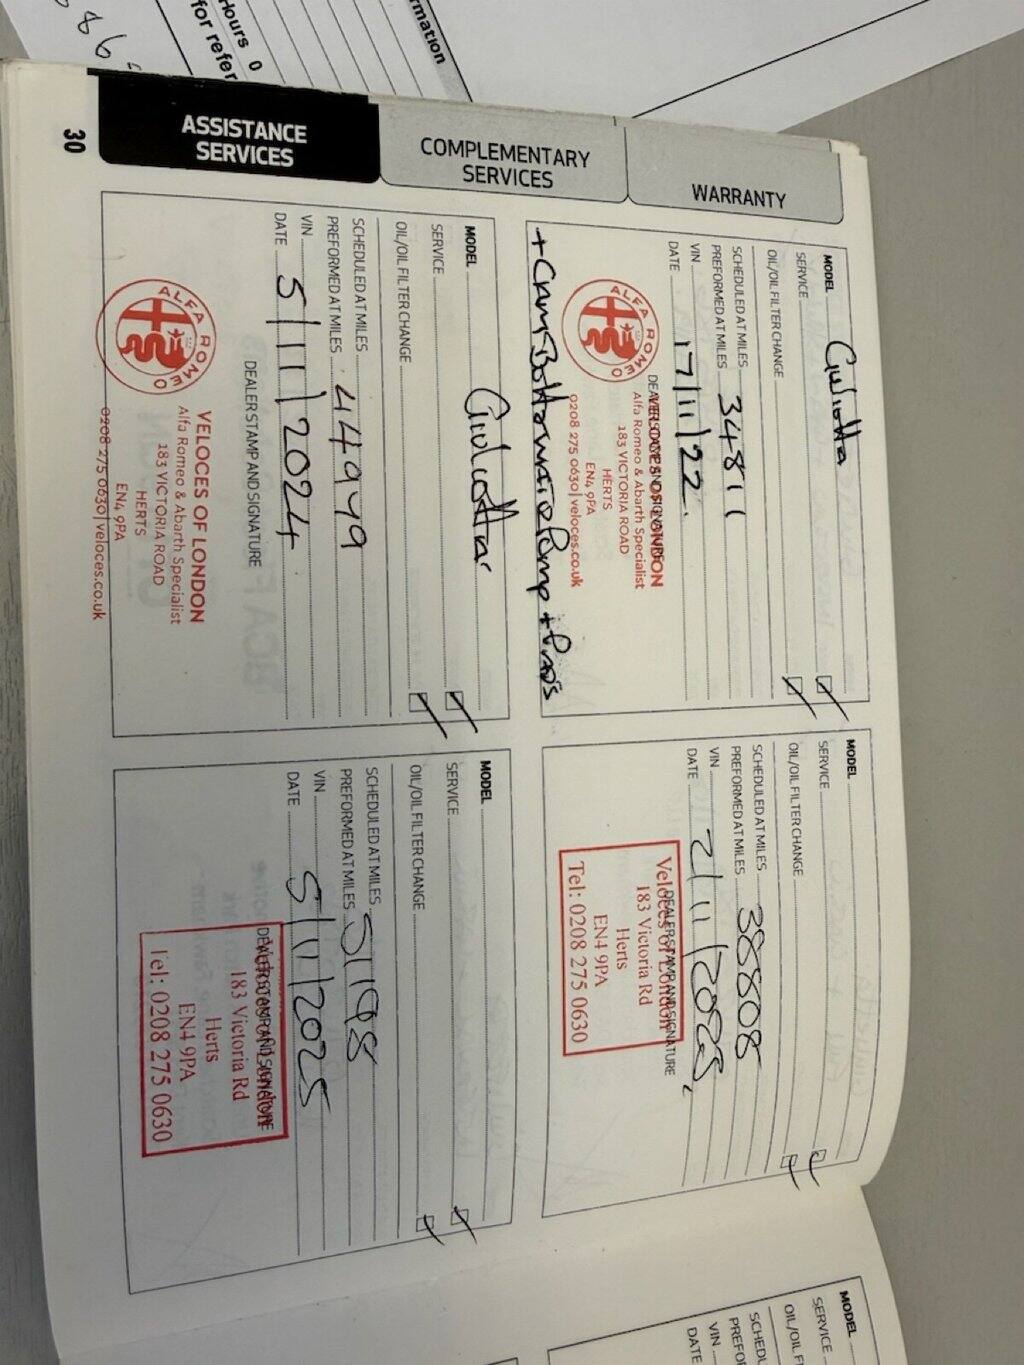 rmation
Hours 0
for refer
30
ASSISTANCE
SERVICES
COMPLEMENTARY
SERVICES
WARRANTY
MODEL Giulietta
SERVICE
OIL/OIL FILTER CHANGE
SCHEDULED AT MILES
PREFORMED AT MILES 34811
VIN
DATE 17/11/22.
DEALER STAMP AND SIGNATURE
ALFA ROMEO
VELOCES OF LONDON
Alfa Romeo & Abarth Specialist
183 VICTORIA ROAD
HERTS
EN4 9PA
0208 275 0630|veloces.co.uk
+ Cam Belt + water Pump + Prads
MODEL
SERVICE
OIL/OIL FILTER CHANGE
SCHEDULED AT MILES
PREFORMED AT MILES 38808
VIN
DATE
DEALER STAMP AND SIGNATURE
Veloces of London
183 Victoria Rd
Herts
EN4 9PA
Tel: 0208 275 0630
MODEL Giulietta
SERVICE
OIL/OIL FILTER CHANGE
SCHEDULED AT MILES
PREFORMED AT MILES 44949
VIN
DATE 5/11/2024
DEALER STAMP AND SIGNATURE
ALFA ROMEO
VELOCES OF LONDON
Alfa Romeo & Abarth Specialist
183 VICTORIA ROAD
HERTS
EN4 9PA
0208 275 0630|veloces.co.uk
MODEL
SERVICE
OIL/OIL FILTER CHANGE
SCHEDULED AT MILES
PREFORMED AT MILES 51198
VIN
DATE 5/11/2025
DEALER STAMP AND SIGNATURE
Veloces of London
183 Victoria Rd
Herts
EN4 9PA
Tel: 0208 275 0630
MODEL
SERVICE
OIL/OIL FIL
SCHEDUL
PREFO
VIN
DATE